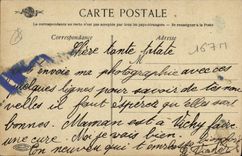 CARTE POSTALE
La correspondance au recto n'est pas acceptée par tous les pays étrangers. (Se renseigner à la Poste)
Correspondance
Adresse
1577
Chère tante
envoie ma photographie avec ces
quelques lignes pour savoir de tes nou
velles il faut espérer qu'elles sont
bonnes. Maman est à Vichy faire
une cure. Moi je vais bien.
Ton neveu qui t'embrasse